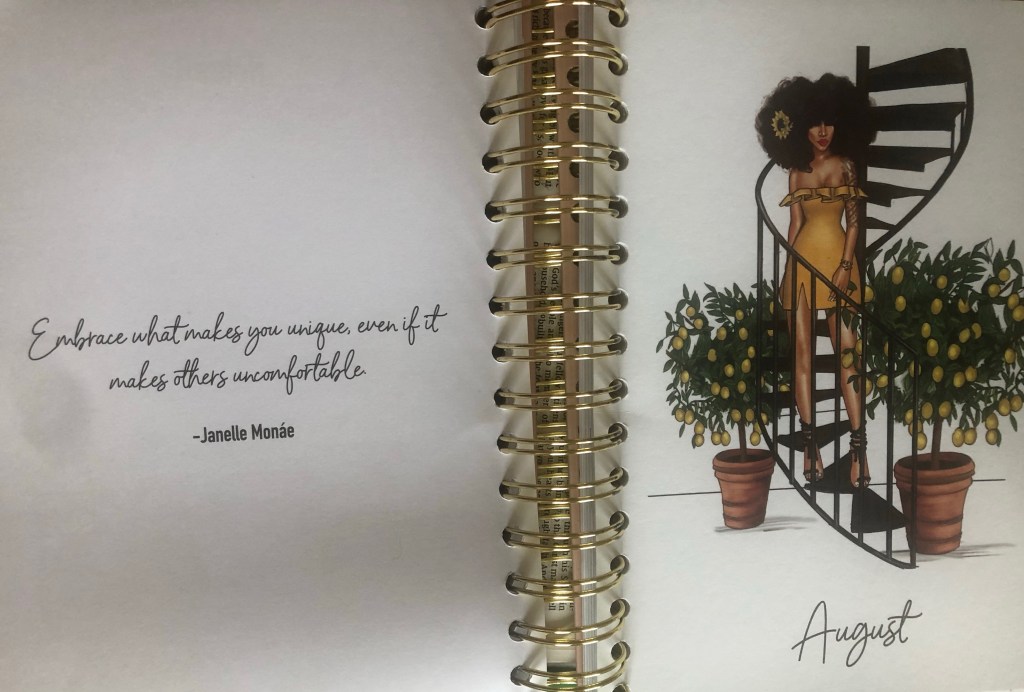 Embrace what makes you unique, even if it
makes others uncomfortable.
-Janelle Monáe
August